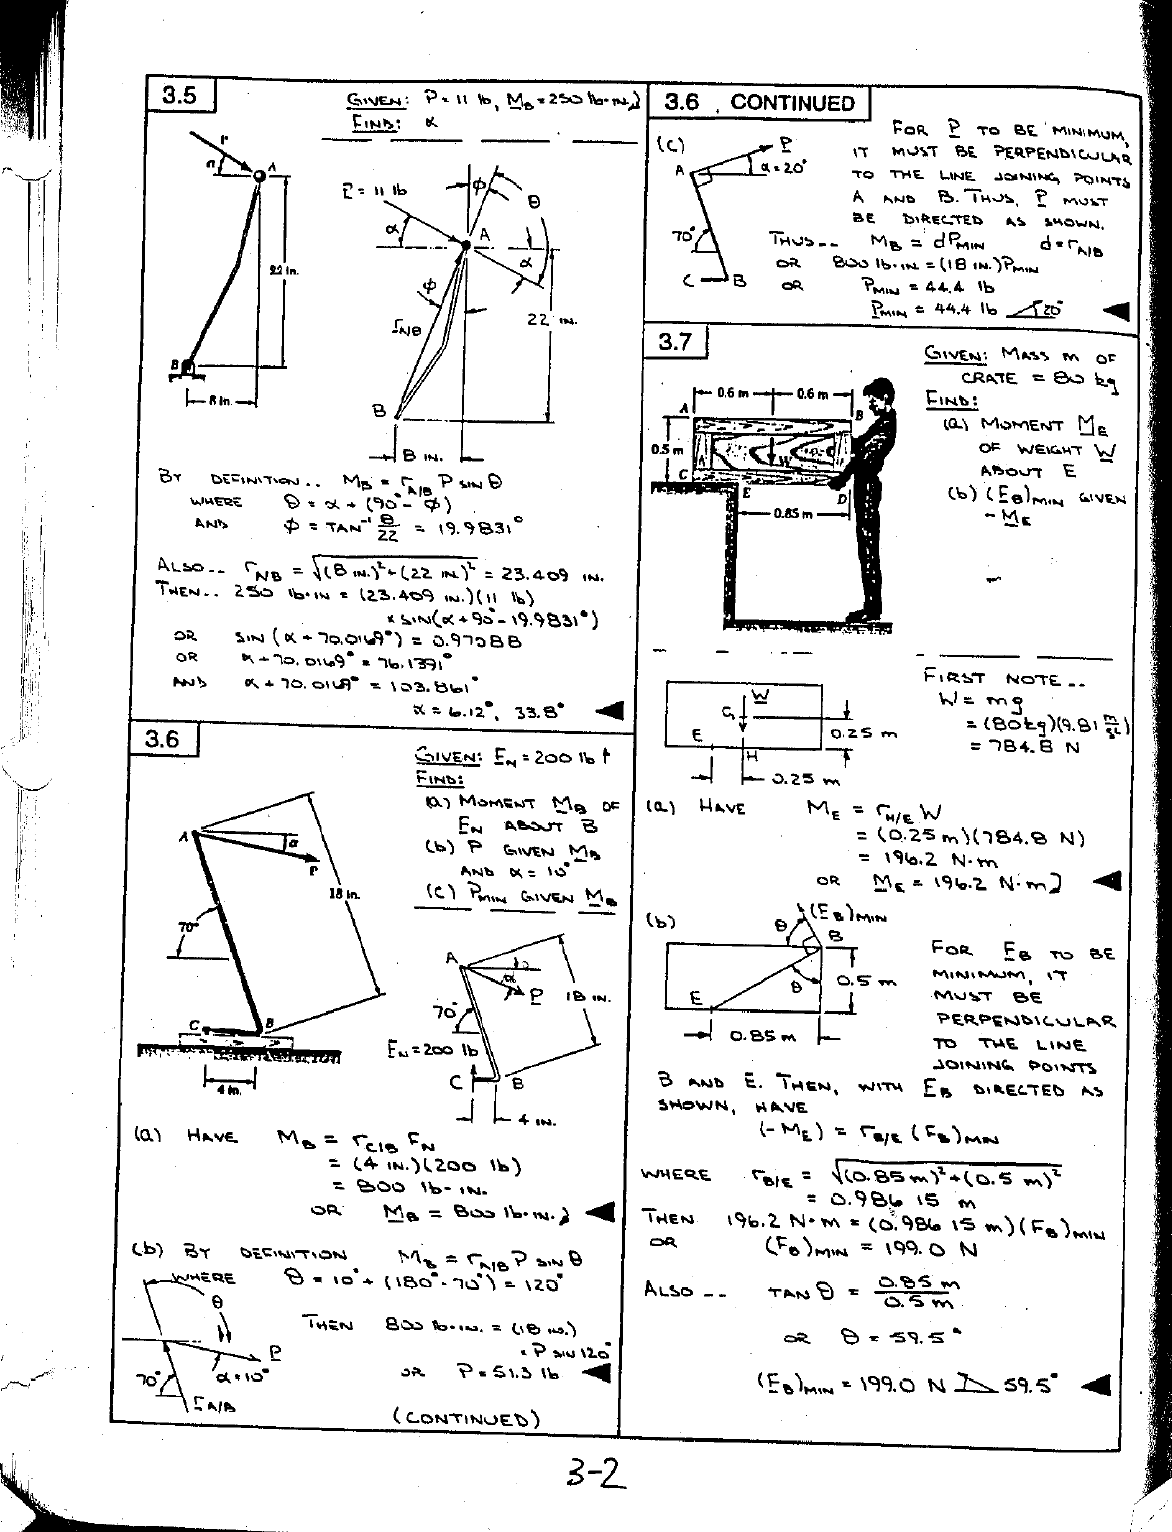 3.5
GIVEN: P = 11 lb, M_B = 250 lb·IN.
FIND: α
P
α
A
22 in.
B
8 in.
P = 11 lb
φ
θ
A
α
α
φ
r_A/B
22 IN.
B
8 IN.
BY DEFINITION.. M_B = r_A/B P SIN θ
WHERE θ = α + (90° - φ)
AND φ = TAN⁻¹ 8/22 = 19.9831°
ALSO-- r_A/B = √(8 IN.)² + (22 IN.)² = 23.409 IN.
THEN.. 250 lb·IN = (23.409 IN.)(11 lb)
× SIN(α + 90° - 19.9831°)
OR SIN (α + 70.0169°) = 0.97088
OR α + 70.0169° = 76.1391°
AND α + 70.0169° = 103.861°
α = 6.12°, 33.8°
3.6
GIVEN: F_N = 200 lb ↑
FIND:
(a) MOMENT M_B OF
F_N ABOUT B
(b) P GIVEN M_B
AND α = 10°
(c) P_MIN GIVEN M_B
A
α
P
18 in.
70°
C
B
4 in.
A
α
P
18 IN.
70°
F_N = 200 lb
C
B
4 IN.
(a) HAVE M_B = r_C/B F_N
= (4 IN.)(200 lb)
= 800 lb-IN.
OR M_B = 800 lb·IN.
(b) BY DEFINITION M_B = r_A/B P SIN θ
WHERE θ = 10° + (180° - 70°) = 120°
θ
P
70°
α = 10°
r_A/B
THEN 800 lb·IN. = (18 IN.)
× P SIN 120°
OR P = 51.3 lb
(CONTINUED)
3.6 . CONTINUED
(c)
P
A
α = 20°
70°
C
B
FOR P TO BE MINIMUM,
IT MUST BE PERPENDICULAR
TO THE LINE JOINING POINTS
A AND B. THUS, P MUST
BE DIRECTED AS SHOWN.
THUS-- M_B = dP_MIN d = r_A/B
OR 800 lb·IN = (18 IN.)P_MIN
OR P_MIN = 44.4 lb
P_MIN = 44.4 lb 20°
3.7
GIVEN: MASS m OF
CRATE = 80 kg
FIND:
(a) MOMENT M_E
OF WEIGHT W
ABOUT E
(b) (F_B)_MIN GIVEN
-M_E
0.6 m
0.6 m
A
B
0.5 m
W
C
E
D
0.85 m
FIRST NOTE--
W = mg
= (80 kg)(9.81 m/s²)
= 784.8 N
W
G
0.25 m
E
H
0.25 m
(a) HAVE M_E = r_H/E W
= (0.25 m)(784.8 N)
= 196.2 N·m
OR M_E = 196.2 N·m
(b)
(F_B)_MIN
θ
B
θ
0.5 m
E
0.85 m
FOR F_B TO BE
MINIMUM, IT
MUST BE
PERPENDICULAR
TO THE LINE
JOINING POINTS
B AND E. THEN, WITH F_B DIRECTED AS
SHOWN, HAVE
(-M_E) = r_B/E (F_B)_MIN
WHERE r_B/E = √(0.85 m)² + (0.5 m)²
= 0.986 15 m
THEN 196.2 N·m = (0.986 15 m)(F_B)_MIN
OR (F_B)_MIN = 199.0 N
ALSO -- TAN θ = 0.85 m / 0.5 m
OR θ = 59.5°
(F_B)_MIN = 199.0 N 59.5°
3-2